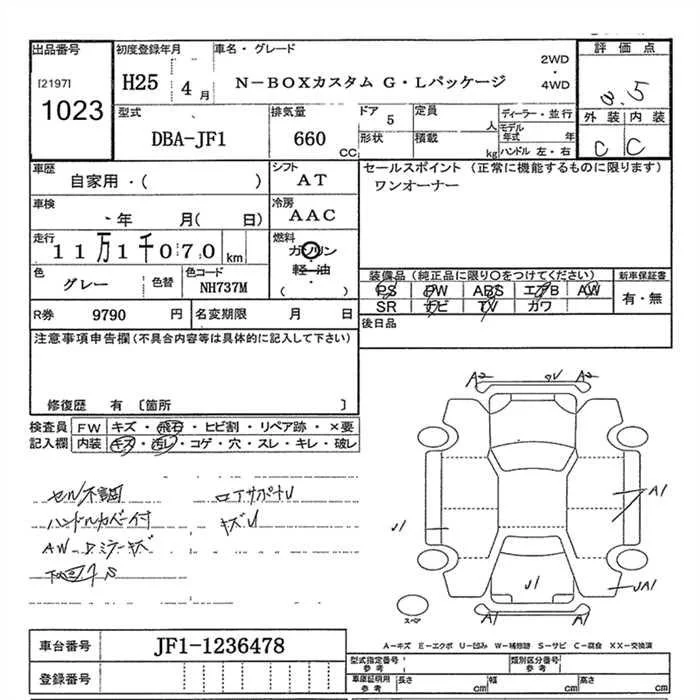 出品番号
[2197]
1023
初度登録年月
H25 4 月
車名・グレード
N－BOXカスタム G・Lパッケージ
2WD
・
4WD
評価点
3.5
外装 内装
C C
型式
DBA-JF1
排気量
660
CC
ドア
5
定員
人
形状
積載
kg
ディーラー・並行
モデル年式 年
ハンドル 左・右
車歴
自家用・( )
シフト
AT
セールスポイント (正常に機能するものに限ります)
ワンオーナー
車検
年 月( 日)
冷房
AAC
走行
11万1千070 km
燃料
ガソリン
・
軽油
( )
色
グレー
色替
色コード
NH737M
装備品(純正品に限り○をつけてください)
PS PW ABS エアB AW
SR ナビ TV カワ
新車保証書
有・無
R券 9790 円
名変期限 月 日
後日品
注意事項申告欄(不具合内容等は具体的に記入して下さい)
修復歴 有 〔箇所 〕
検査員 FW キズ・飛石・ヒビ割・リペア跡・×要
記入欄 内装 キズ・汚レ・コゲ・穴・スレ・キレ・破レ
セル不調
ハンドルカバー付
キズU
AW
A2 A2
A1
U1
U1
A1 A1
スペア
車台番号 JF1-1236478
登録番号
A－キズ E－エクボ U－凹み W－補修跡 S－サビ C－腐食 XX－交換済
型式指定番号
参考
類別区分番号
参考
車庫証明用
参考
長さ cm
幅 cm
高さ cm